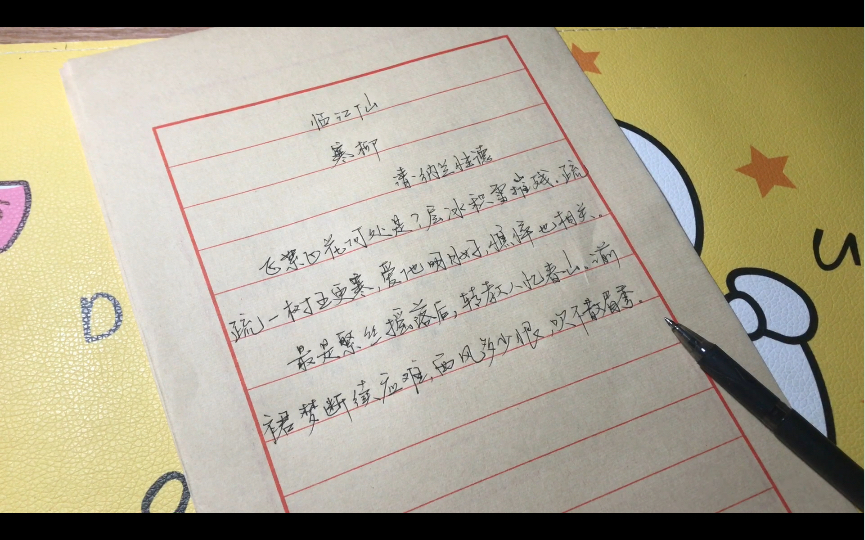 临江仙
寒柳
清·纳兰性德
飞絮飞花何处是?层冰积雪摧残,疏
疏一树五更寒,爱他明月好,憔悴也相关。
最是繁丝摇落后,转教人忆春山。湔
裙梦断续应难,西风多少恨,吹不散眉弯。
D